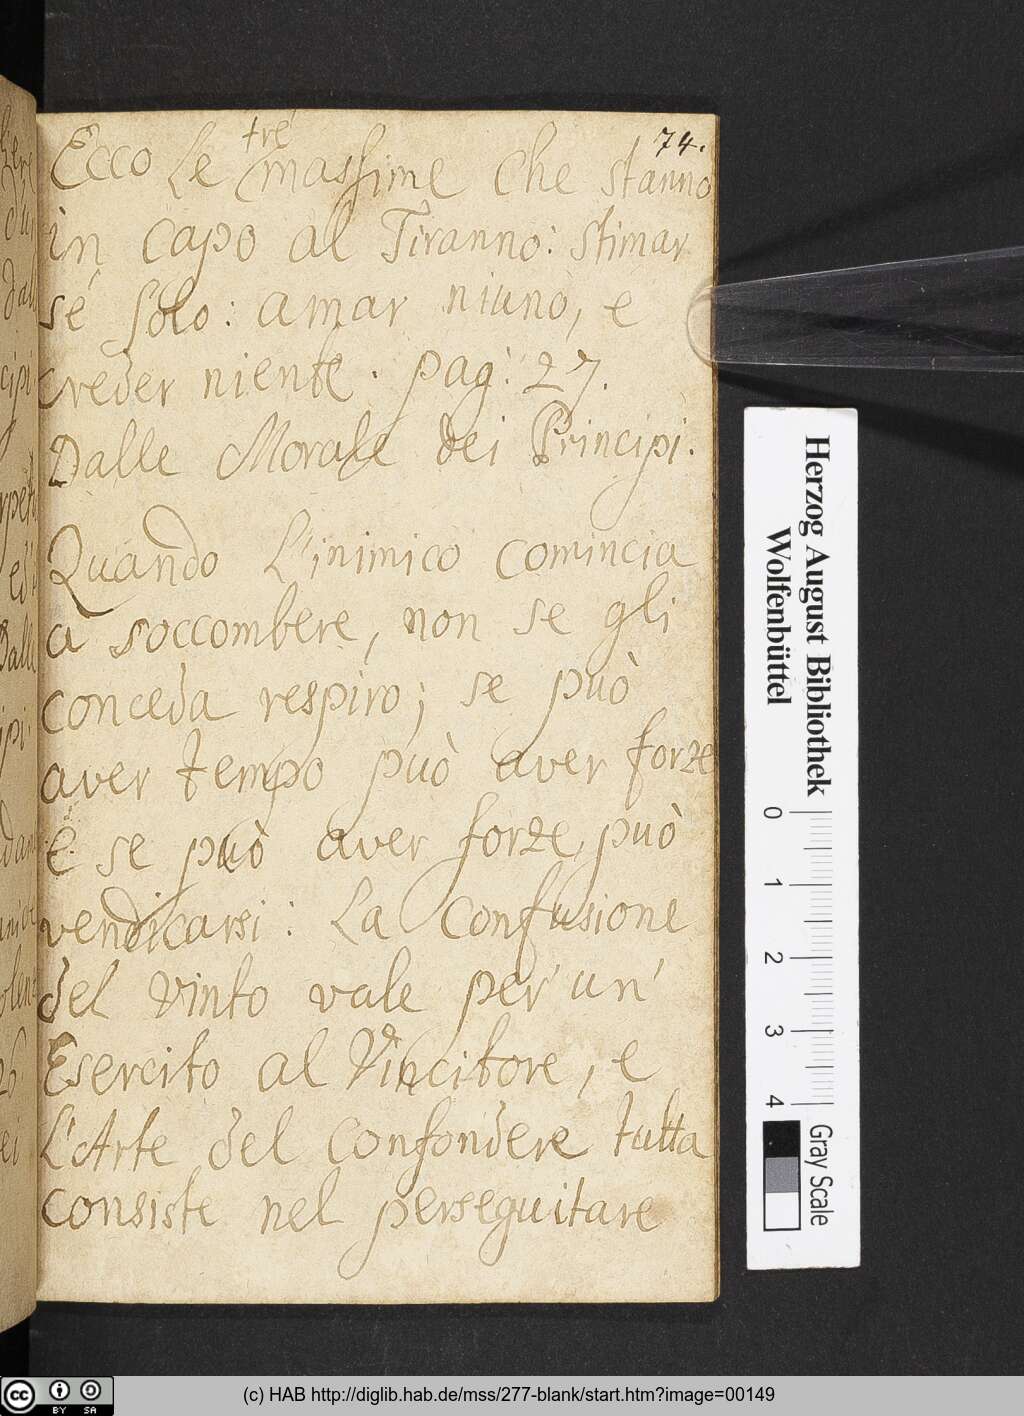 74.
Ecco le tré massime che stanno
in capo al Tiranno: stimar
sé solo: amar niuno, e
creder niente. pag: 27.
Dalle Morale dei Principi.
Quando l'inimico comincia
a soccombere, non se gli
conceda respiro; se può
aver tempo può aver forze
E se può aver forze, può
vendicarsi: La Confusione
del vinto vale per un'
Esercito al Vincitore, e
L'Arte del Confondere tutta
consiste nel perseguitare
Herzog August Bibliothek
Wolfenbüttel
0 1 2 3 4
Gray Scale
(c) HAB http://diglib.hab.de/mss/277-blank/start.htm?image=00149
cc BY SA